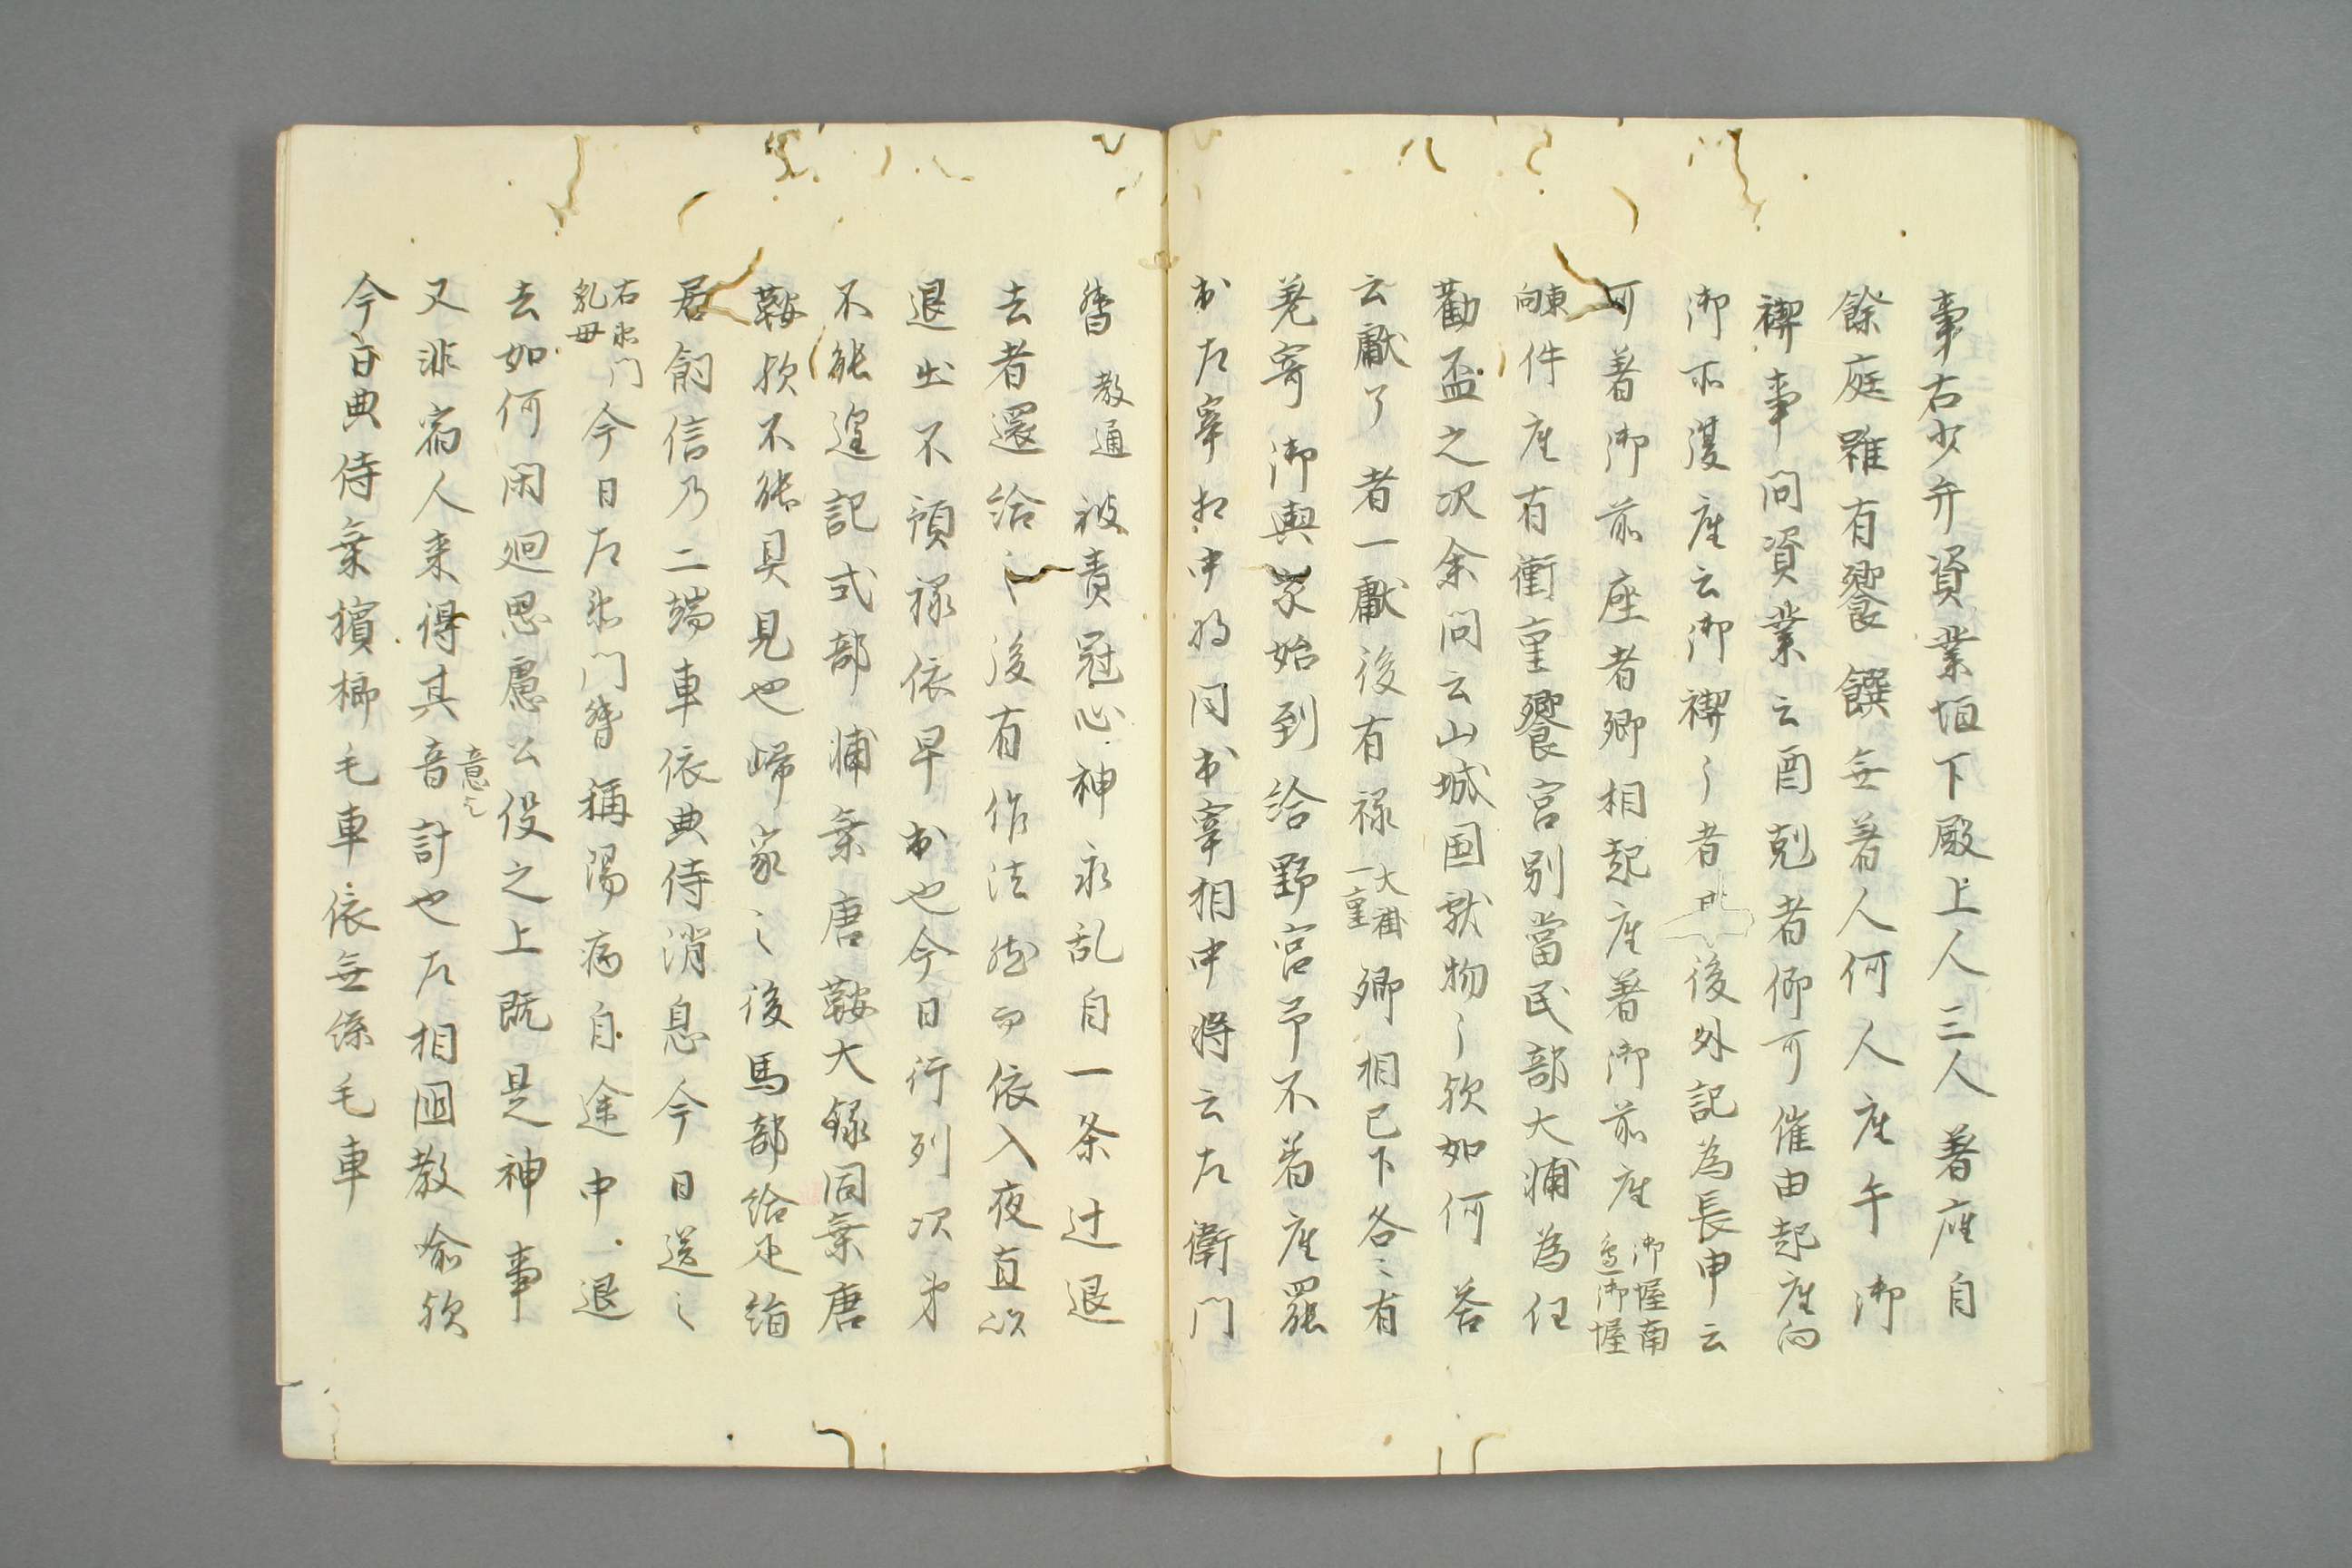 事右少弁資業垣下殿上人三人著座自
餘庭雖有饗饌無著人何人座午御
禊事問資業云酉剋者仰可催由起座向
御所復座云御禊了者此後外記為長申云
可著御前座者卿相起座著御前座御幄南
邊御幄
東
向件座有衝重饗宮別當民部大輔為任
勸盃之次余問云山城国献物了欤如何答
云献了者一獻後有禄大褂
一重卿相已下各々有
差寄御輿家始到給野宮予不着座罷
出左宰相中将同出宰相中将云左衛門
督教通被責冠心神亦乱自一条辻退
去者還給之後有作法然而依入夜直以
退出不預禄依早出也今日行列次第
不能遑記式部輔乗唐鞍大録同乗唐
鞍欤不能具見也歸家之後馬部給疋絹
居飼信乃二端車依典侍消息今日送之
右衛門
乳母今日左衛門督稱陽病自途中退
去如何閑廻思慮公役之上既是神事
又非宿人来得其音意欤計也左相国教喩欤
今日典侍乗檳榔毛車依無絲毛車